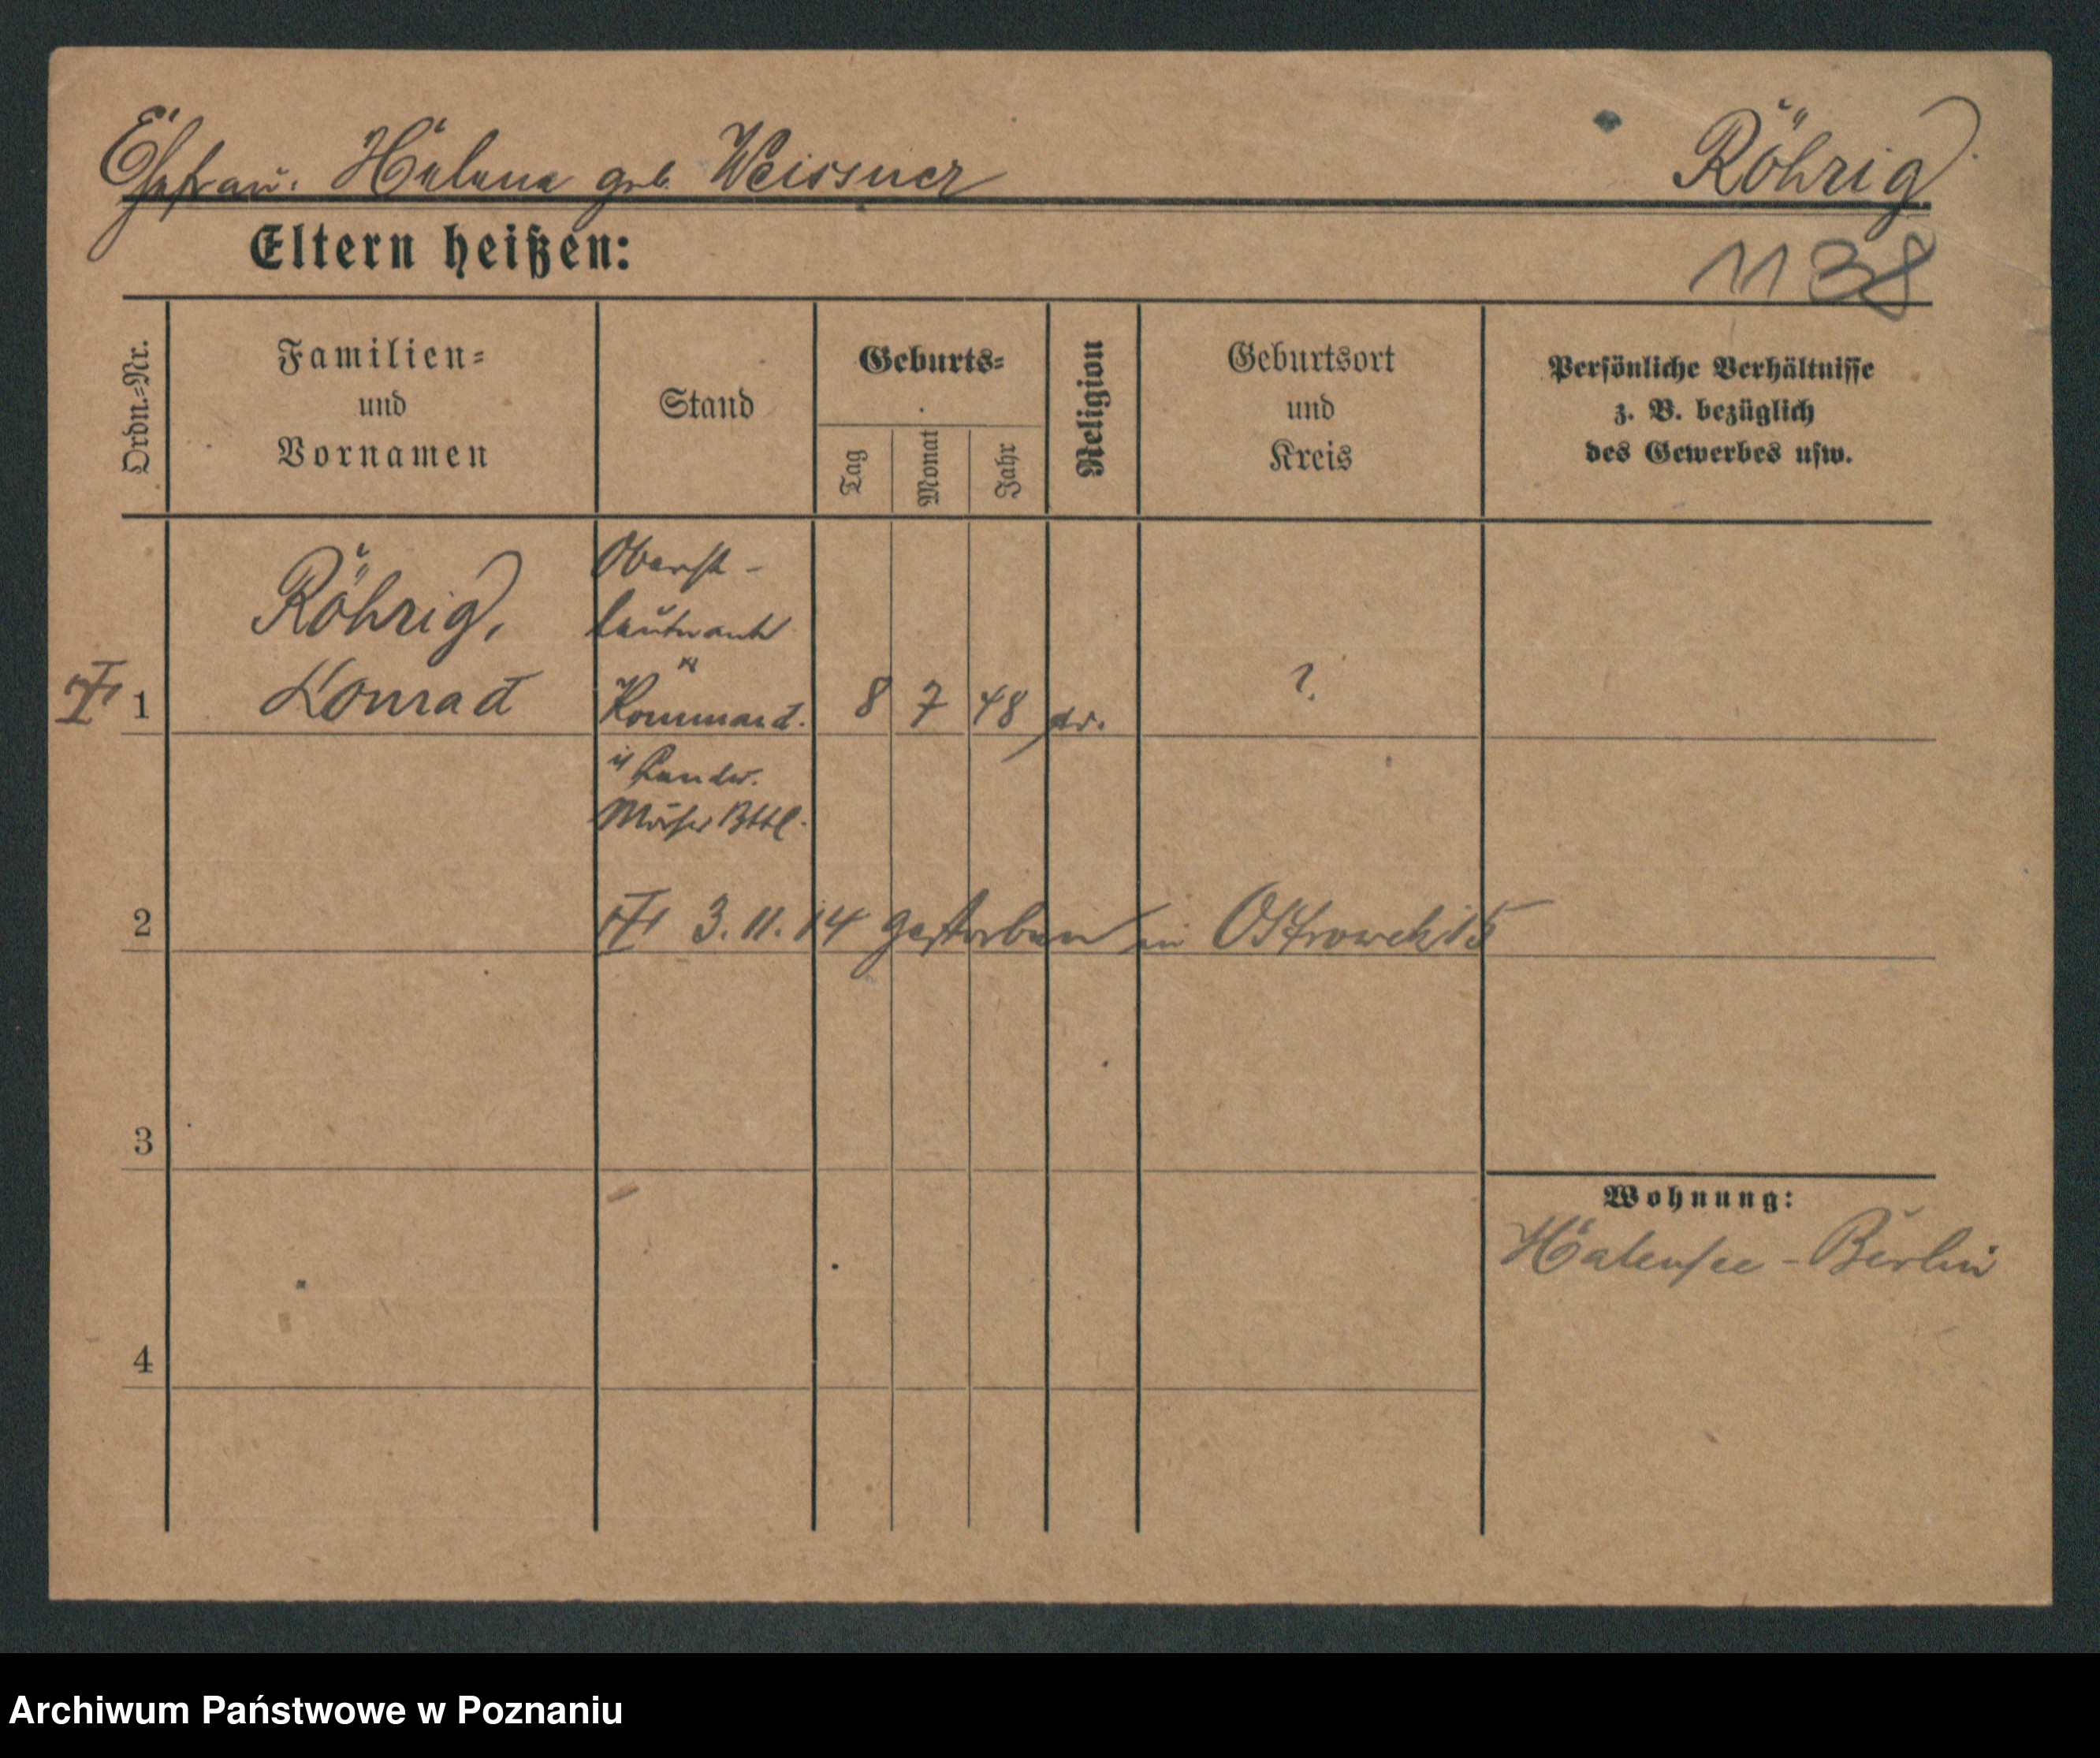 Ehefrau: Helene geb. Weissner Röhrig
Eltern heißen:
1138
Ordn.-Nr.
Familien-
und
Vornamen
Stand
Geburts-
Tag
Monat
Jahr
Religion
Geburtsort
und
Kreis
Persönliche Verhältnisse
z. B. bezüglich
des Gewerbes usw.
Röhrig,
Konrad
Oberst-
leutnant
u
Kommand.
Landw.
Mörser Bttl.
1 8 7 48 ev. ?
2 3.11.14 gestorben in
3
Wohnung:
Halensee - Berlin
4
Archiwum Państwowe w Poznaniu